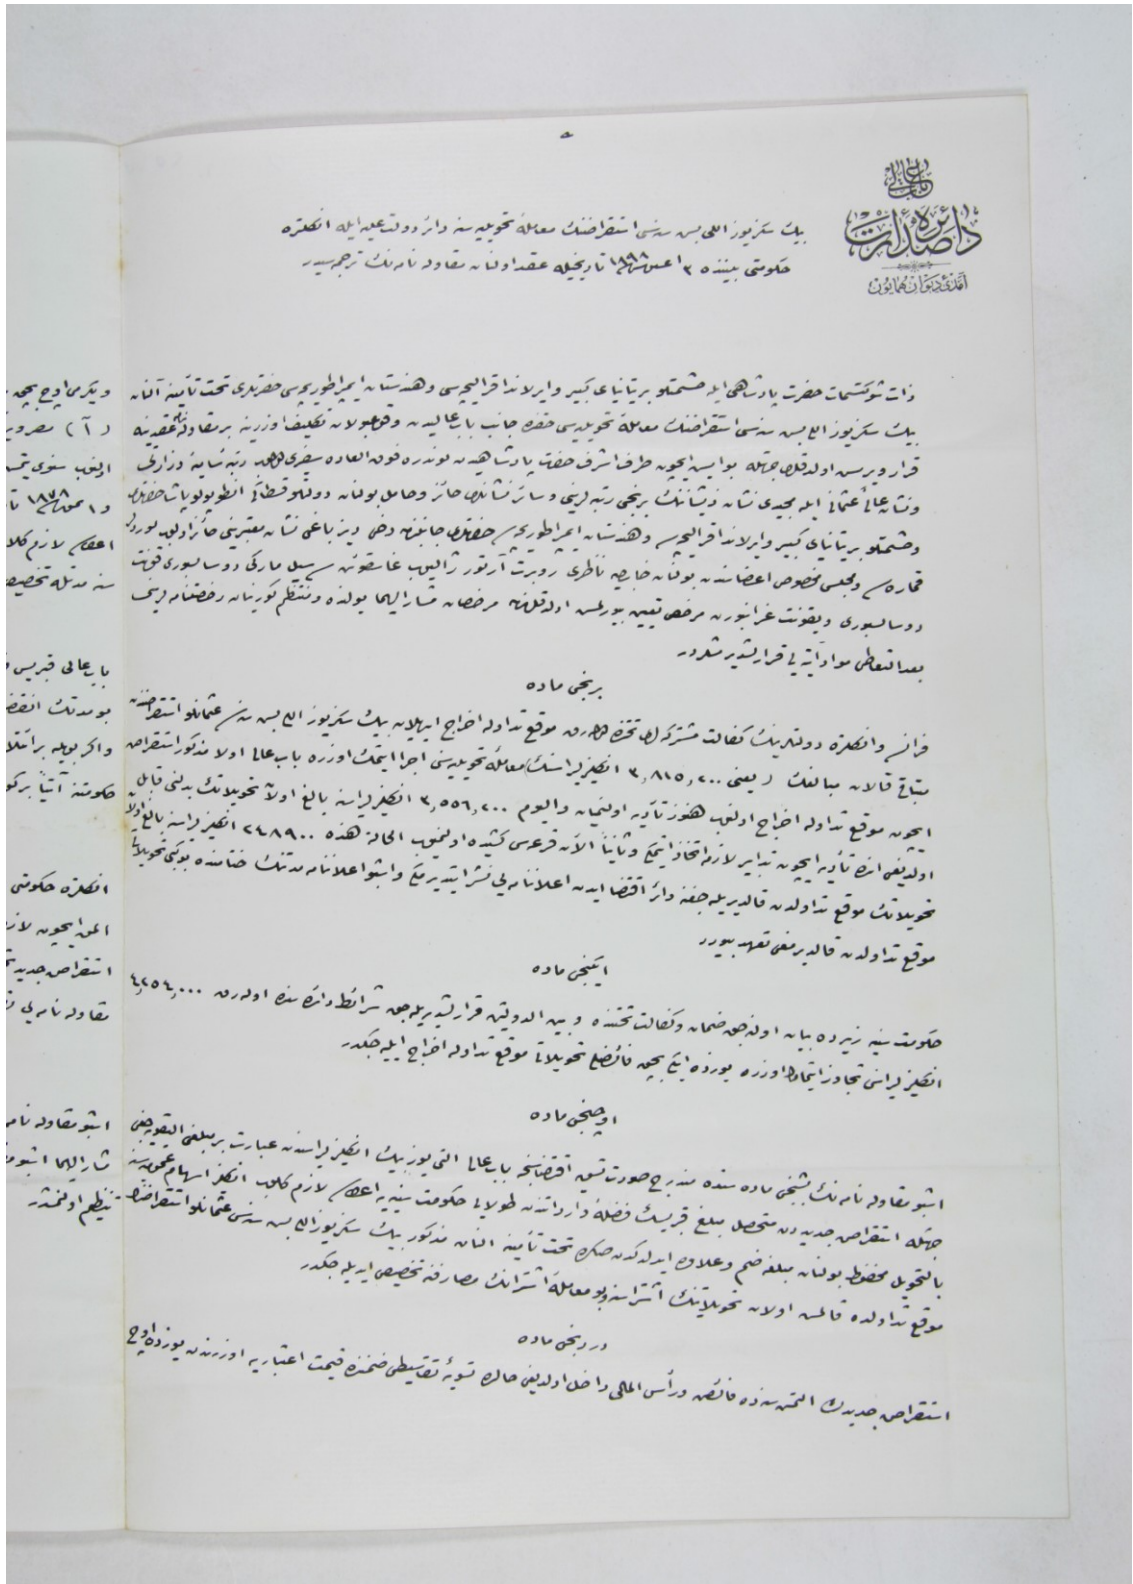 باب عالى
دائرۀ صدارت
آمدئ ديوان همايون
بيك سكزيوز اللى بش سنه سى استقراضنك معاملۀ تحويليه سنه دائر دولت عليه ايله انكلتره
حكومتى بيننده ٣ اغستوس ١٨٩٨ تاريخيله عقد اولنان مقاوله نامه نك ترجمه سيدر
ذات شوكتسمات حضرت پادشاهى ايله حشمتلو بريتانياى كبير وايرلاندا قراليچه سى وهندستان ايمپراطوريچه سى حضرتلرى تحت تأمينه آلنان
بيك سكزيوز اللى بش سنه سى استقراضنك معاملۀ تحويليه سى حقنده جانب باب عاليدن وقوعبولان تكليف اوزرينه بر مقاوله نامه عقدينه
قرار ويرمش اولدقلرى جهتله بو ايش ايچون طرف اشرف حضرت پادشاهيدن لوندره فوق العاده سفيرى رتبه سأميۀ وزارتى
ونشان عالئ عثمانى ايله مجيدى نشان ذيشاننك برنجى رتبه لرينى وسائر نشانلرى حائز وحامل بولنان دولتلو قسطاكى انطوپولو پاشا حضرتلرى
وحشمتلو بريتانياى كبير وايرلاندا قراليچه سى وهندستان ايمپراطوريچه سى حضرتلرى جانبندن دخى ديز باغى نشان معتبرينى حائز اولوب لوردلر
قماره سى ومجلس مخصوص اعضاسندن بولنان خارجيه ناظرى روبرت آرتور تالبوت غاسقوئن سه سيل ماركى دو سالسبورى قونت
دو سالسبورى ويقونت غرانبورن مرخص تعيين بيورلمش اولدقلرندن مرخصان مشار اليهما يولنده ومنتظم كورينان رخصتنامه لرينى
بعد التعاطى مواد آتيه يى قرارلشديرمشلردر
برنجى ماده
فرانسه وانكلتره دولتلرينك كفالت مشتركه لرى تحتنده اوله رق موقع تداوله اخراج ايديلان بيك سكزيوز اللى بش سنه سى عثمانلو استقراضندن
متباقى قالان مبالغك (يعنى ٣,٨١٥,٢٠٠ انكليز ليراسنك) معاملۀ تحويليه سنى اجرا ايتمك اوزره باب عالى اولا مذكور استقراض
ايچون موقع تداوله اخراج اولنوب هنوز تأديه اولنميان واليوم ٣,٥٥٦,٢٠٠ انكليز ليراسنه بالغ اولان تحويلاتك بدلنى قابل
اولديغى آنده تأديه ايچون تدابير لازمه اتخاذ ايتمكى وثانياً الآن قرعه سى كشيده اولنميوب الحالة هذه ٢٤٨٩٠٠ انكليز ليراسنه بالغ اولان
تحويلاتك موقع تداولدن قالديريله جغنه دائر اقتضا ايدن اعلاننامه يى نشر ايتديرمكى واشبو اعلاننامه مدتنك ختامنده بو كبى تحويلاتى
موقع تداولدن قالديرمغى تعهد بيورر
ايكنجى ماده
حكومت سنيه زيرده بيان اولنه جق ضمان وكفالت تحتنده وبين الدولتين قرارلشديريله جق شرائط دائره سنده اوله رق ٤,٢٥٤,٠٠٠
انكليز ليراسنى تجاوز ايتمامك اوزره يوزده ايكى بچق فائضلى تحويلاتى موقع تداوله اخراج ايليه جكدر
اوچنجى ماده
اشبو مقاوله نامه نك بشنجى ماده سنده مندرج صورت تسويه اقتضاسنجه باب عالى التى يوز بيك انكليز ليراسندن عبارت بر مبلغى اليقويه جغى
جهتله استقراض جديددن متحصل مبلغ قبريسك فضلۀ وارداتندن طولايى حكومت سنيه يه اعطاسى لازم كلوب انكلز اسهام عموميه سنه
بالتحويل محفوظ بولنان مبلغه ضم وعلاوه ايدلدكدن صكره تحت تأمينه النان مذكور بيك سكزيوز اللى بش سنه سى عثمانلو استقراضندن
موقع تداولده قالمش اولان تحويلاتنك اشتراسنه وبو معاملۀ اشترانك مصارفنه تخصيص ايديله جكدر
دردنجى ماده
استقراض جديدك التمش سنه ده فائض ورأس المالى داخل اولديغى حالده تسويۀ تقاسيطى ضمننده قيمت اعتباريه اوزرندن يوزده اوچ
ويكرمى اوچ بچق
(آ)
اولنوب سنوى
اعطاسى لازم كلان
سنه مدتله تخصيص
باب عالى قبريس
بو مدتك انقضا
واكر بويله بر ائتلاف
حكومتنه آتياً بر
انكلتره حكومتى
المق ايچون لازم
استقراض جديد
مقاوله نامه يى
اشبو مقاوله نامه
مشار اليهما اشبو
تنظيم اولنمشدر